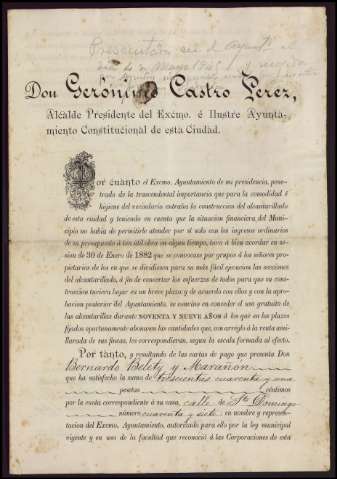 Presentada en el Ayunt.
Don Gerónimo Castro Perez,
Alcalde Presidente del Excmo. é Ilustre Ayunta-
miento Constitucional de esta Ciudad.
Por cuánto el Excmo. Ayuntamiento de mi presidencia, pene-
trado de la trascendental importancia que para la comodidad é
higiene del vecindario entraña la construccion del alcantarillado
de esta ciudad y teniendo en cuenta que la situacion financiera del Muni-
cipio no habia de permitirle atender por sí solo con los ingresos ordinarios
de su presupuesto á tan útil obra en algun tiempo, tuvo á bien acordar en se-
sion de 30 de Enero de 1882 que se convocase por grupos á los señores pro-
pietarios de los en que se dividiesen para su más fácil ejecucion las secciones
del alcantarillado, á fin de concertar los esfuerzos de todos para que su cons-
truccion tuviera lugar en un breve plazo y de acuerdo con ellos y con la apro-
bacion posterior del Ayuntamiento, se convino en conceder el uso gratuito de
las alcantarillas durante NOVENTA Y NUEVE AÑOS á los que en los plazos
fijados oportunamente abonasen las cantidades que, con arreglo á la renta ami-
llarada de sus fincas, les correspondieran, segun la escala formada al efecto.
Por tánto, y resultando de las cartas de pago que presenta Don
Bernardo Belety y Marañon
que ha satisfecho la suma de trescientas cuarenta y una
pesetas céntimos
por la cuota correspondiente á su casa, calle de Sto. Domingo
número cuarenta y siete en nombre y represen-
tacion del Excmo. Ayuntamiento, autorizado para ello por la ley municipal
vigente y en uso de la facultad que reconoció á las Corporaciones de esta